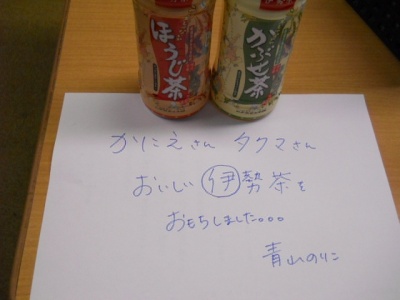 ほうじ茶
かぶせ茶
かにえさん タクマさん
おいしい伊勢茶を
おもちしました。。。
青山のりこ